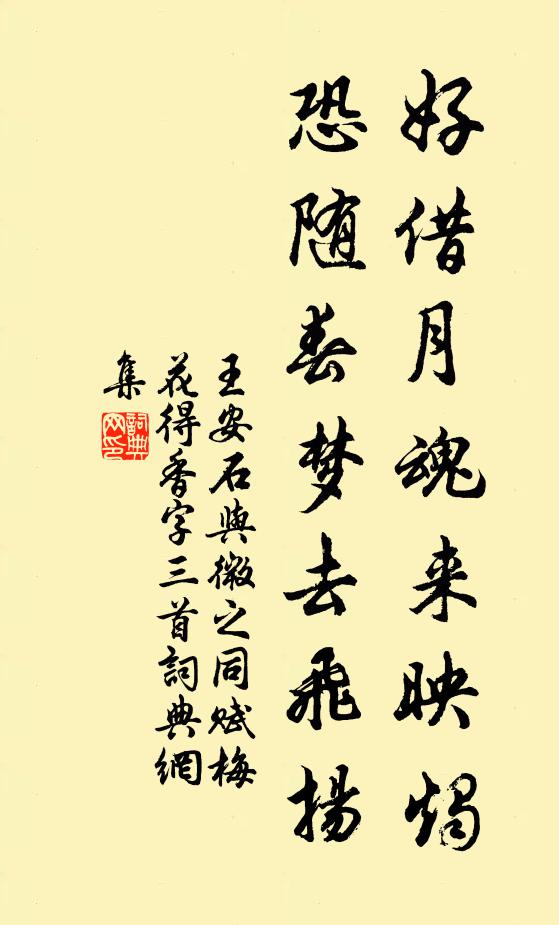 好借月魂来映燭
恐随春梦去飛揚
王安石與微之同赋梅
花得香字三首詞典網
集
詞典
网印